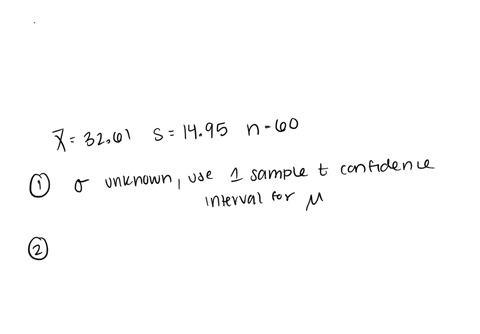 x̄ = 32.61 s = 14.95 n = 60
① σ unknown, use 1 sample t confidence
interval for μ
②